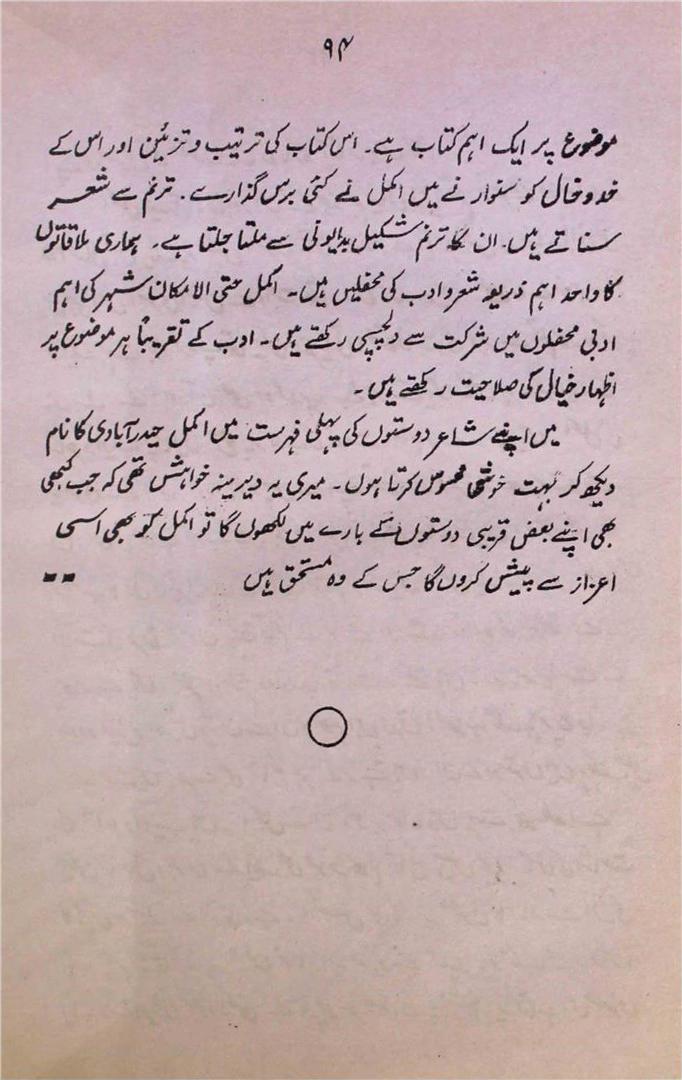 ۹۴
موضوع پر ایک اہم کتاب ہے۔ اس کتاب کی ترتیب و تزئین اور اس کے
خد و خال کو سنوارنے میں اکمل نے کئی برس گذارے۔ ترنم سے شعر
سناتے ہیں۔ ان کا ترنم شکیل بدایونی سے ملتا جلتا ہے۔ ہماری ملاقاتوں
کا واحد اہم ذریعہ شعر و ادب کی محفلیں ہیں۔ اکمل حتی الامکان شہر کی اہم
ادبی محفلوں میں شرکت سے دلچسپی رکھتے ہیں۔ ادب کے تقریباً ہر موضوع پر
اظہار خیال کی صلاحیت رکھتے ہیں۔
میں اپنے شاعر دوستوں کی پہلی فہرست میں اکمل حیدرآبادی کا نام
دیکھ کر بہت خوشی محسوس کرتا ہوں۔ میری یہ دیرینہ خواہش تھی کہ جب کبھی
بھی اپنے بعض قریبی دوستوں کے بارے میں لکھوں گا تو اکمل کو بھی اسی
اعزاز سے پیش کروں گا جس کے وہ مستحق ہیں